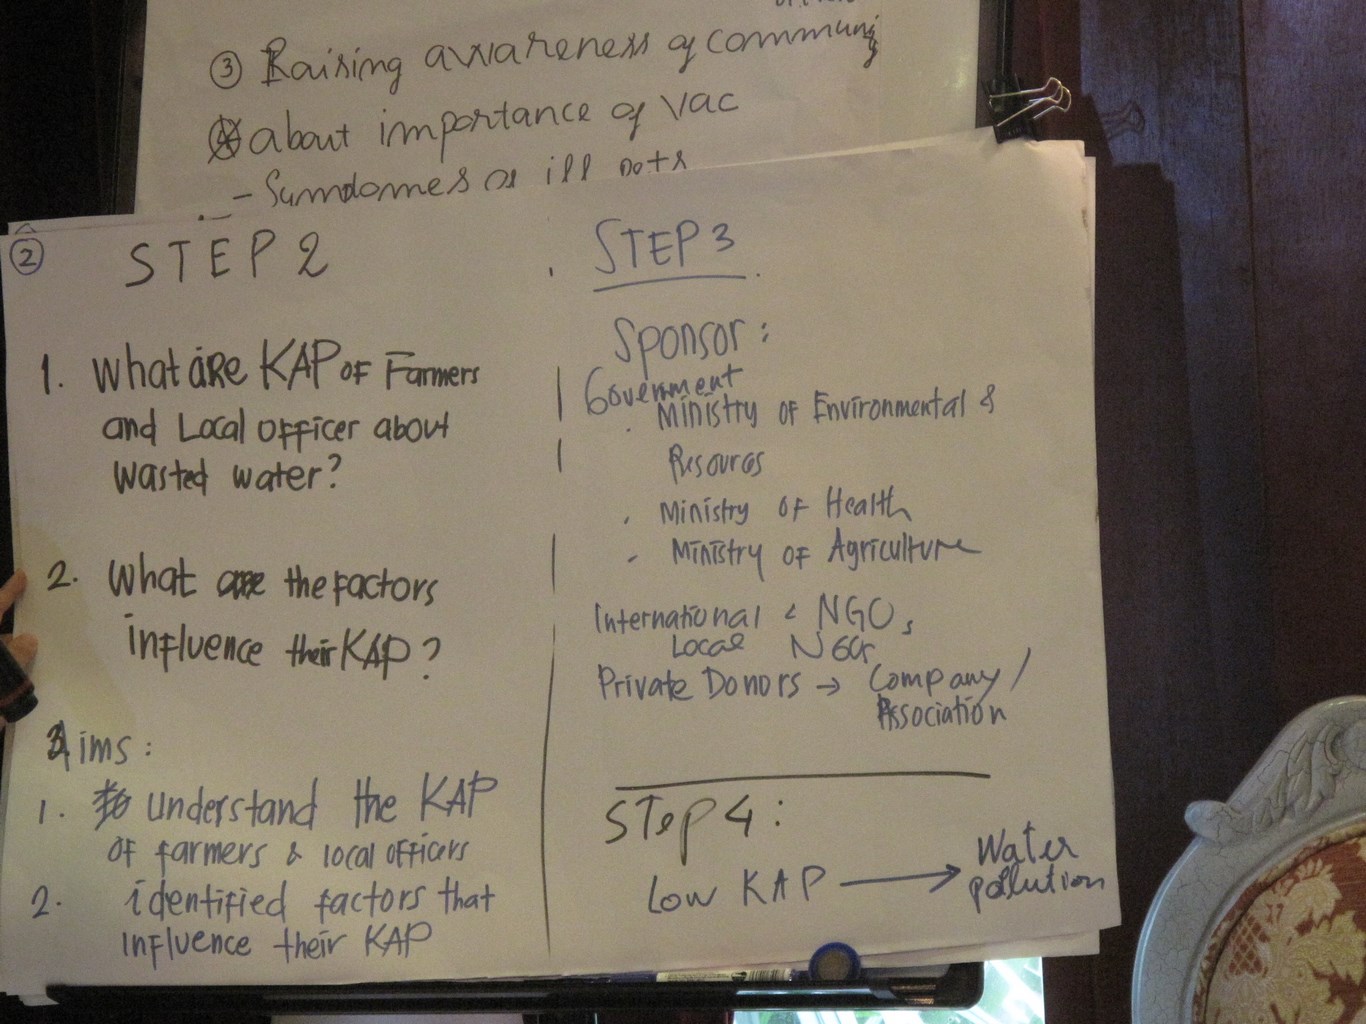 ③ Raising awareness of community
about importance of vac
- Sumdomes os ill pots
②
STEP 2
1. What are KAP of Farmers
and Local officer about
wasted water?
2. What are the factors
influence their KAP?
Aims:
1. understand the KAP
of farmers & local officers
2. identified factors that
influence their KAP
STEP 3
Sponsor:
Government
. Ministry of Environmental &
Resources
. Ministry of Health
- Ministry of Agriculture
International & NGOs
Local NGOs
Private Donors → Company /
Association
STEP 4:
Low KAP → Water
pollution